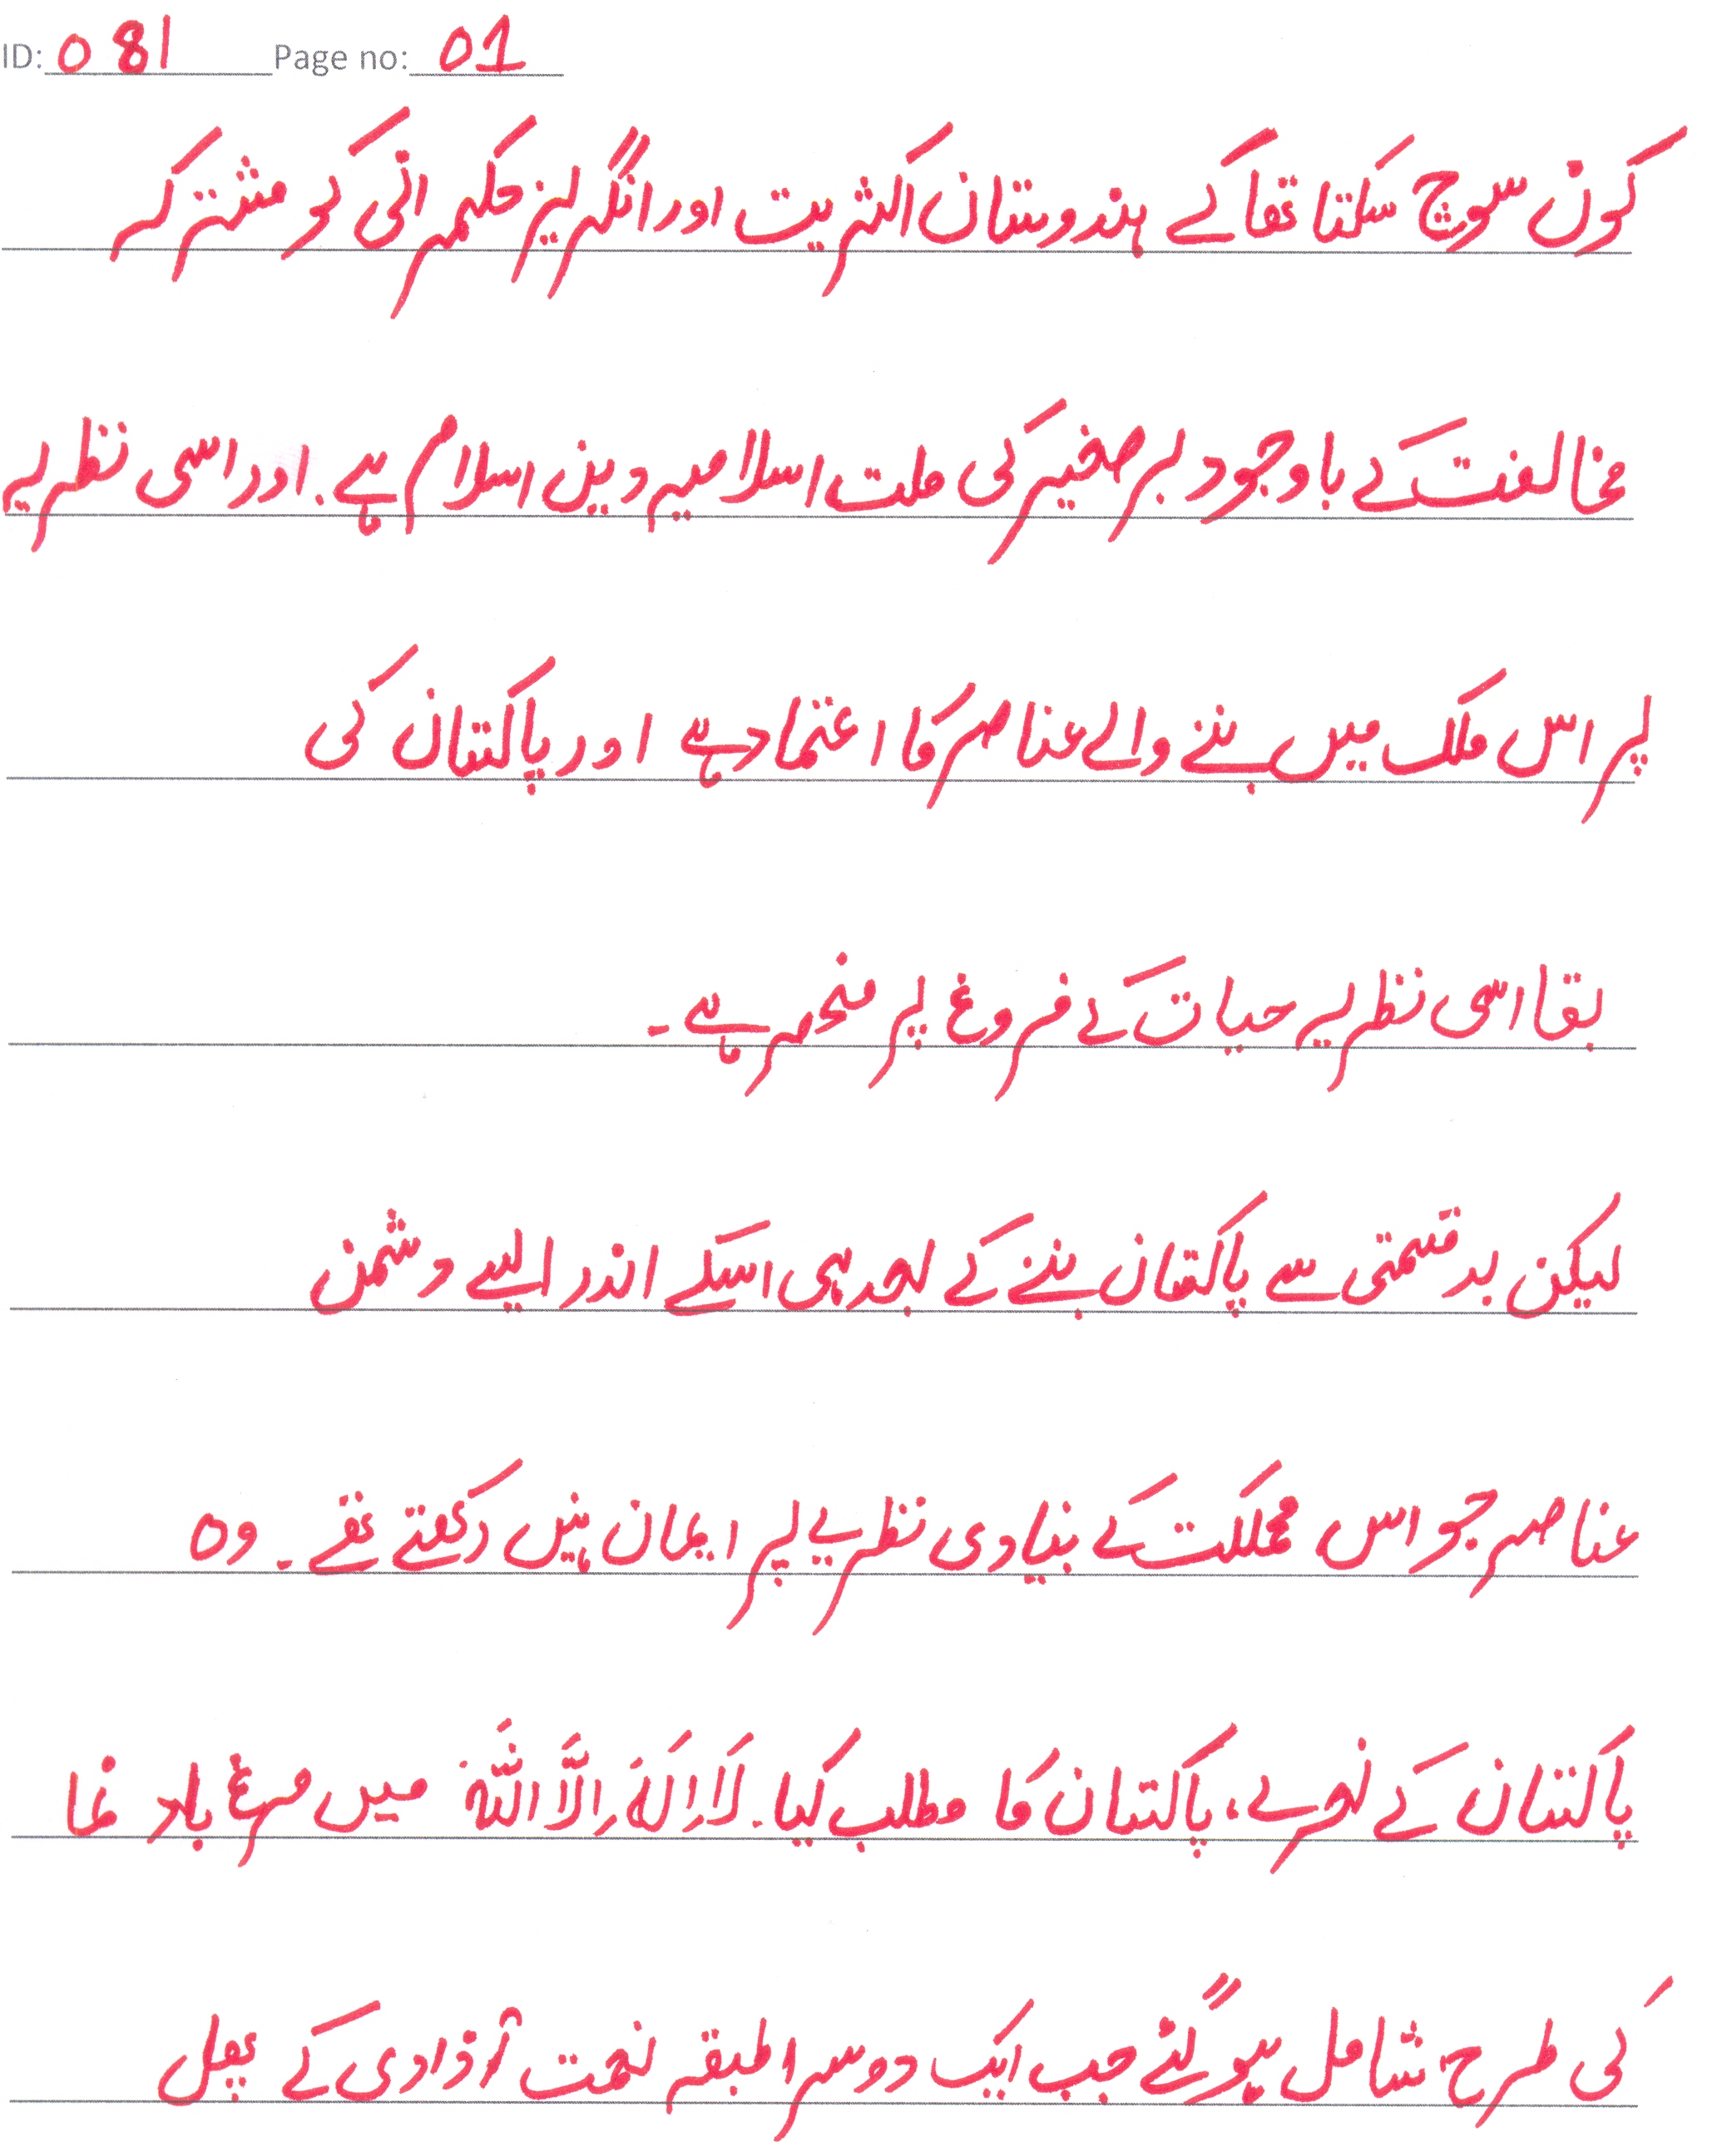 ID: 081 Page no: 01
کون سوچ سکتا تھا کے ہندوستان اکثریت اور انگریز حکمرانی کو مشترکہ
مخالفت کے باوجود برصغیر کی ملت اسلامیہ دین اسلام ہے۔ اور اسی نظریہ
پر اس ملک میں بسنے والے عناصر کا اعتماد ہے اور پاکستان کی
بقا اسی نظریہ حیات کے فروغ پر منحصر ہے۔
لیکن بدقسمتی سے پاکستان بننے کے بعد ہی اسکے اندر ایسے دشمن
عناصر جو اس مملکت کے بنیادی نظریے پر ایمان نہیں رکھتے تھے۔ وہ
پاکستان کے نعرے، پاکستان کا مطلب کیا۔ لَا اِلٰہَ اِلَّا اللّٰہ میں مرغ باد نما
کی طرح شامل ہو گئے جب ایک دوسرا طبقہ نعمت آزادی کے پھل